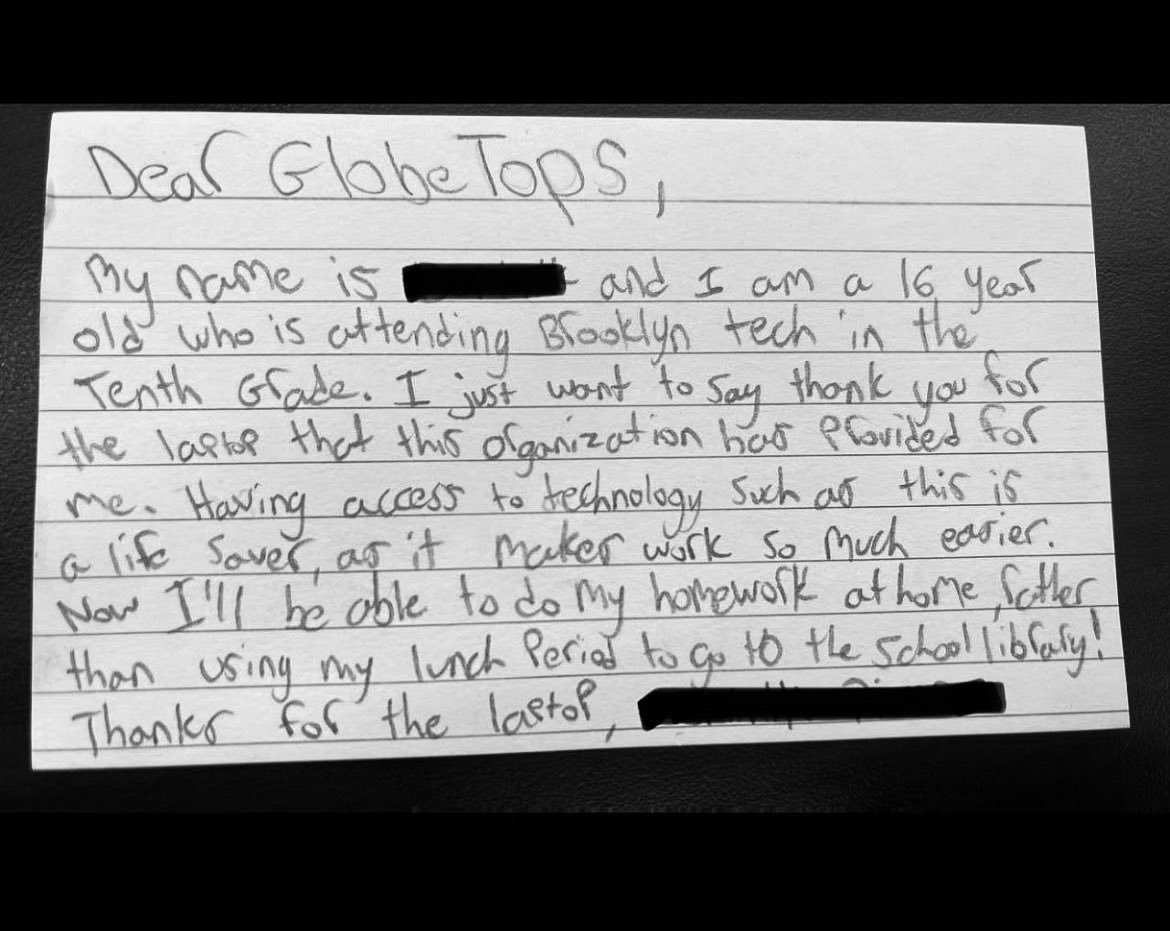 Dear GlobeTops,
My name is and I am a 16 year
old who is attending Brooklyn tech in the
Tenth Grade. I just want to say thank you for
the laptop that this organization has provided for
me. Having access to technology such as this is
a life saver, as it makes work so much easier.
Now I'll be able to do my homework at home, rather
than using my lunch Period to go to the school library!
Thanks for the laptop,